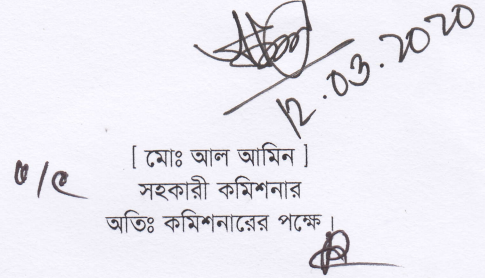 12.03.2020
[ মোঃ আল আমিন ]
সহকারী কমিশনার
অতিঃ কমিশনারের পক্ষে।